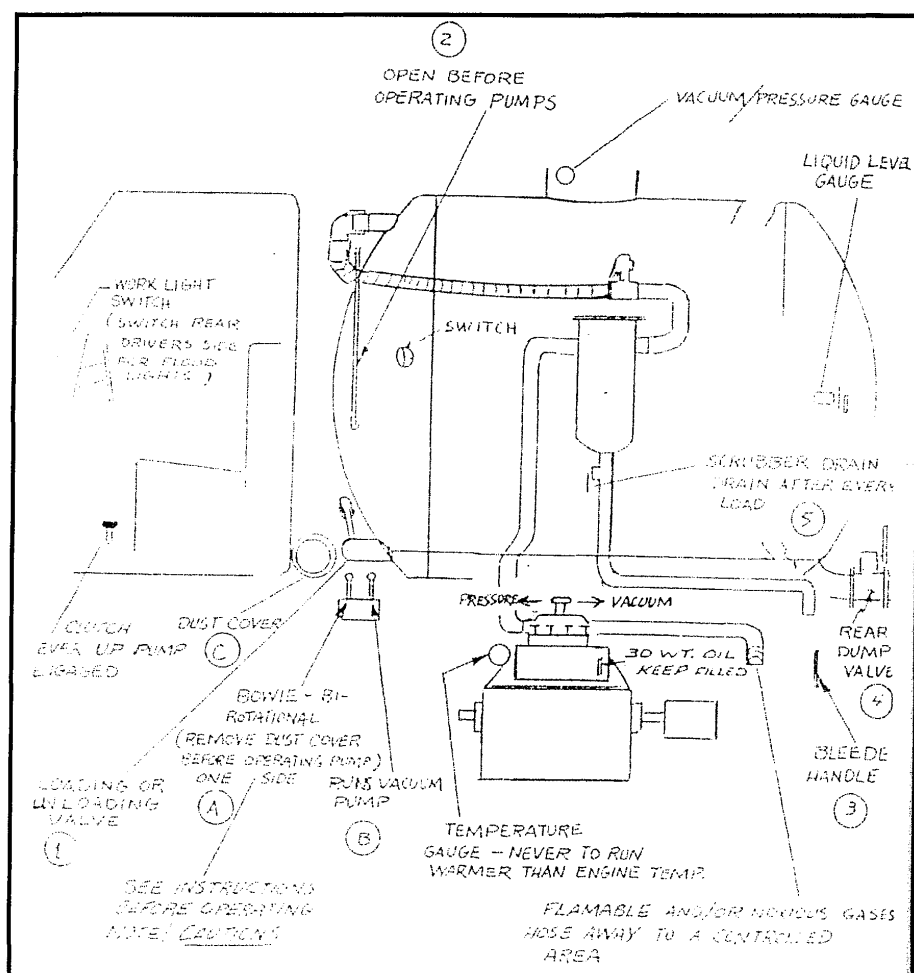 2
OPEN BEFORE
OPERATING PUMPS
VACUUM/PRESSURE GAUGE
LIQUID LEVEL
GAUGE
WORK LIGHT
SWITCH
(SWITCH REAR
DRIVERS SIDE
FOR FLOOD
LIGHTS)
SWITCH
SCRUBBER DRAIN
DRAIN AFTER EVERY
LOAD
5
PRESSURE
VACUUM
30 WT. OIL
KEEP FILLED
REAR
DUMP
VALVE
4
CLUTCH
EVER UP PUMP
GAGED
DUST COVER
C
BOWIE - BI-
ROTATIONAL
(REMOVE DUST COVER
BEFORE OPERATING PUMP)
ONE SIDE
A
RUNS VACUUM
PUMP
B
LOADING OR
UNLOADING
VALVE
1
BLEEDE
HANDLE
3
TEMPERATURE
GAUGE - NEVER TO RUN
WARMER THAN ENGINE TEMP.
SEE INSTRUCTIONS
BEFORE OPERATING
NOTE! CAUTIONS
FLAMABLE AND/OR NOXIOUS GASES
HOSE AWAY TO A CONTROLLED
AREA